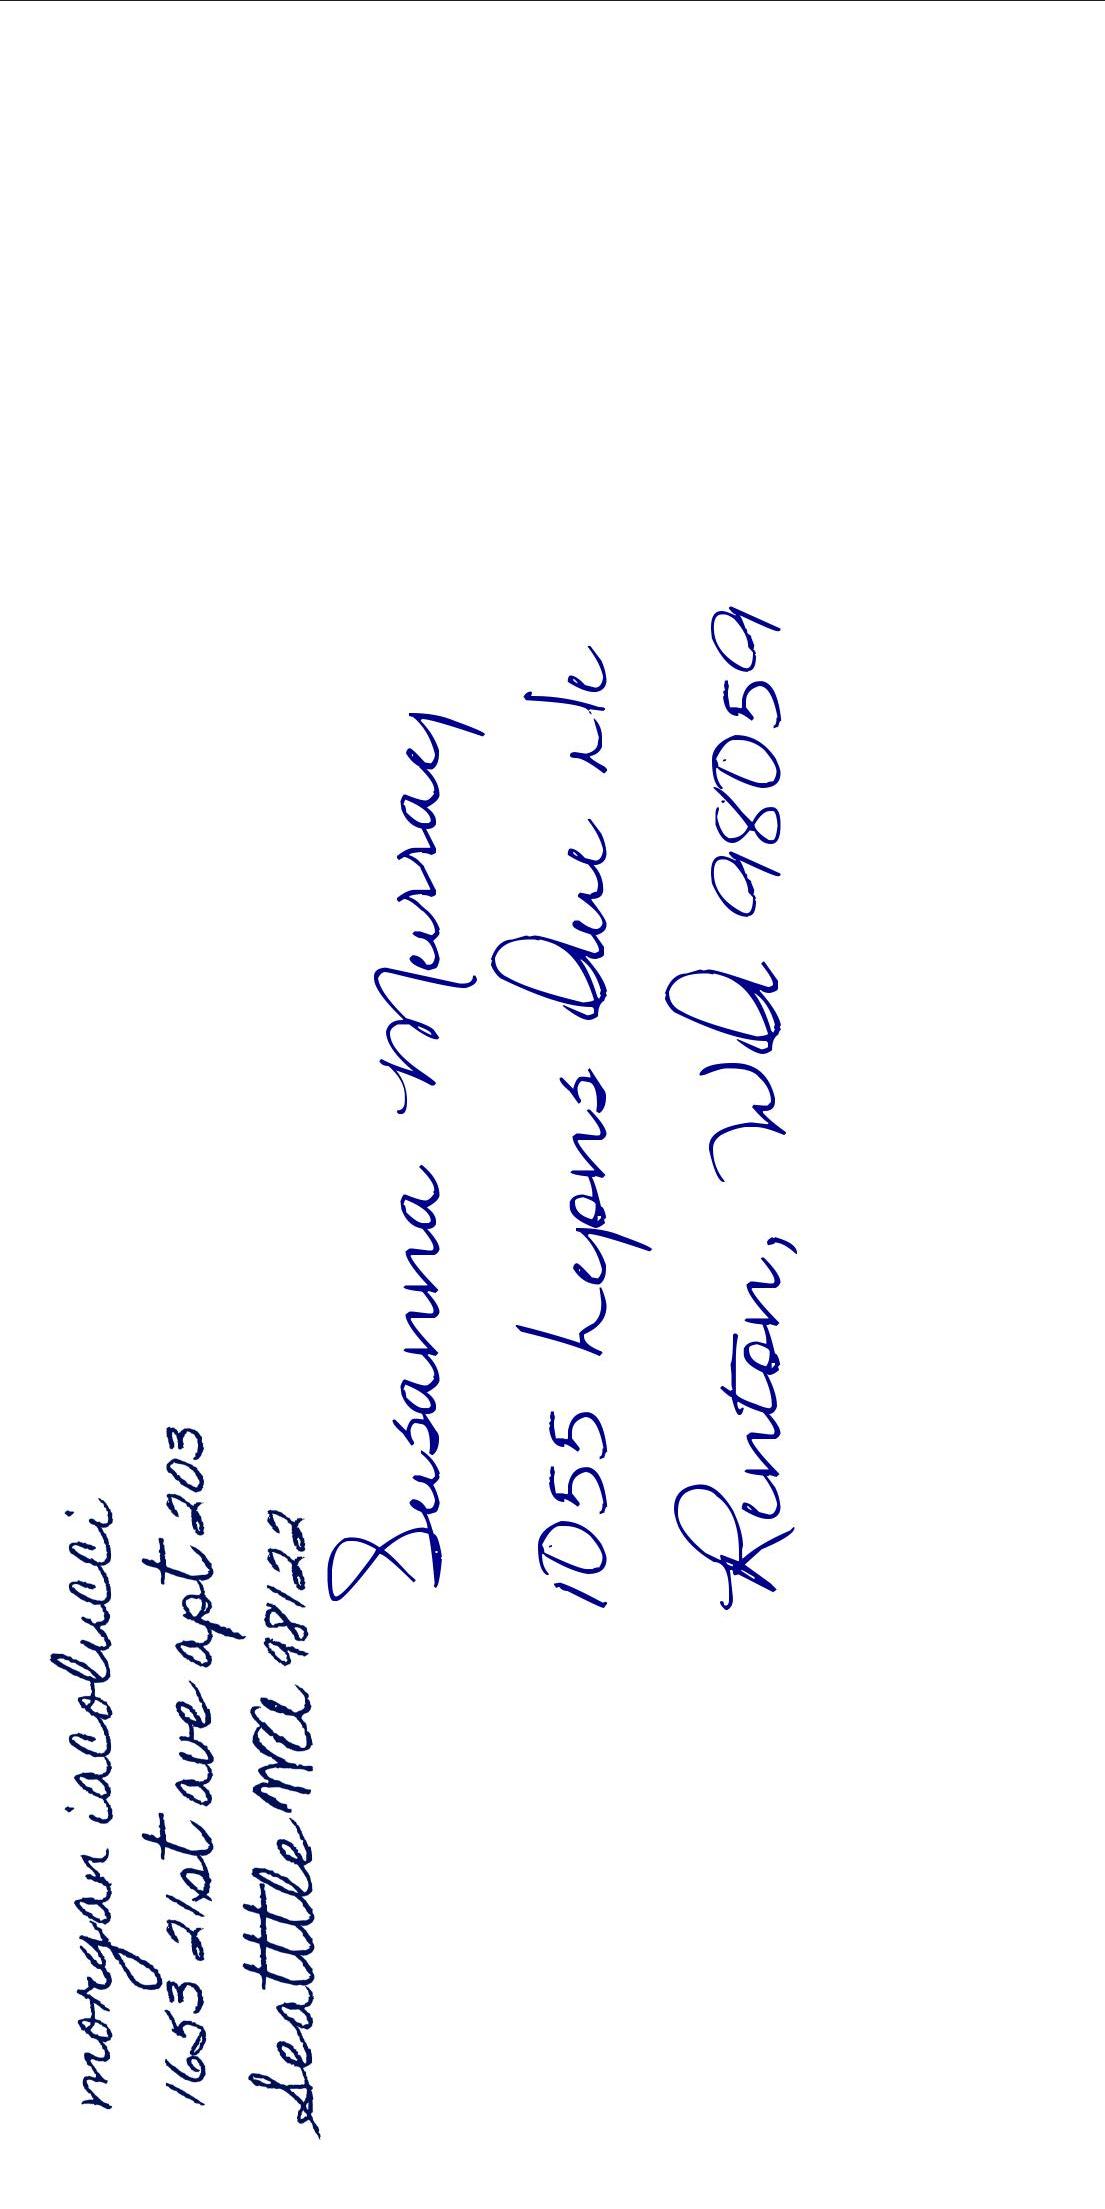 morgan iacolucci
1653 21st ave apt 203
Seattle WA 98122
Susanna Murray
1055 Lyons Ave NE
Renton, WA 98059